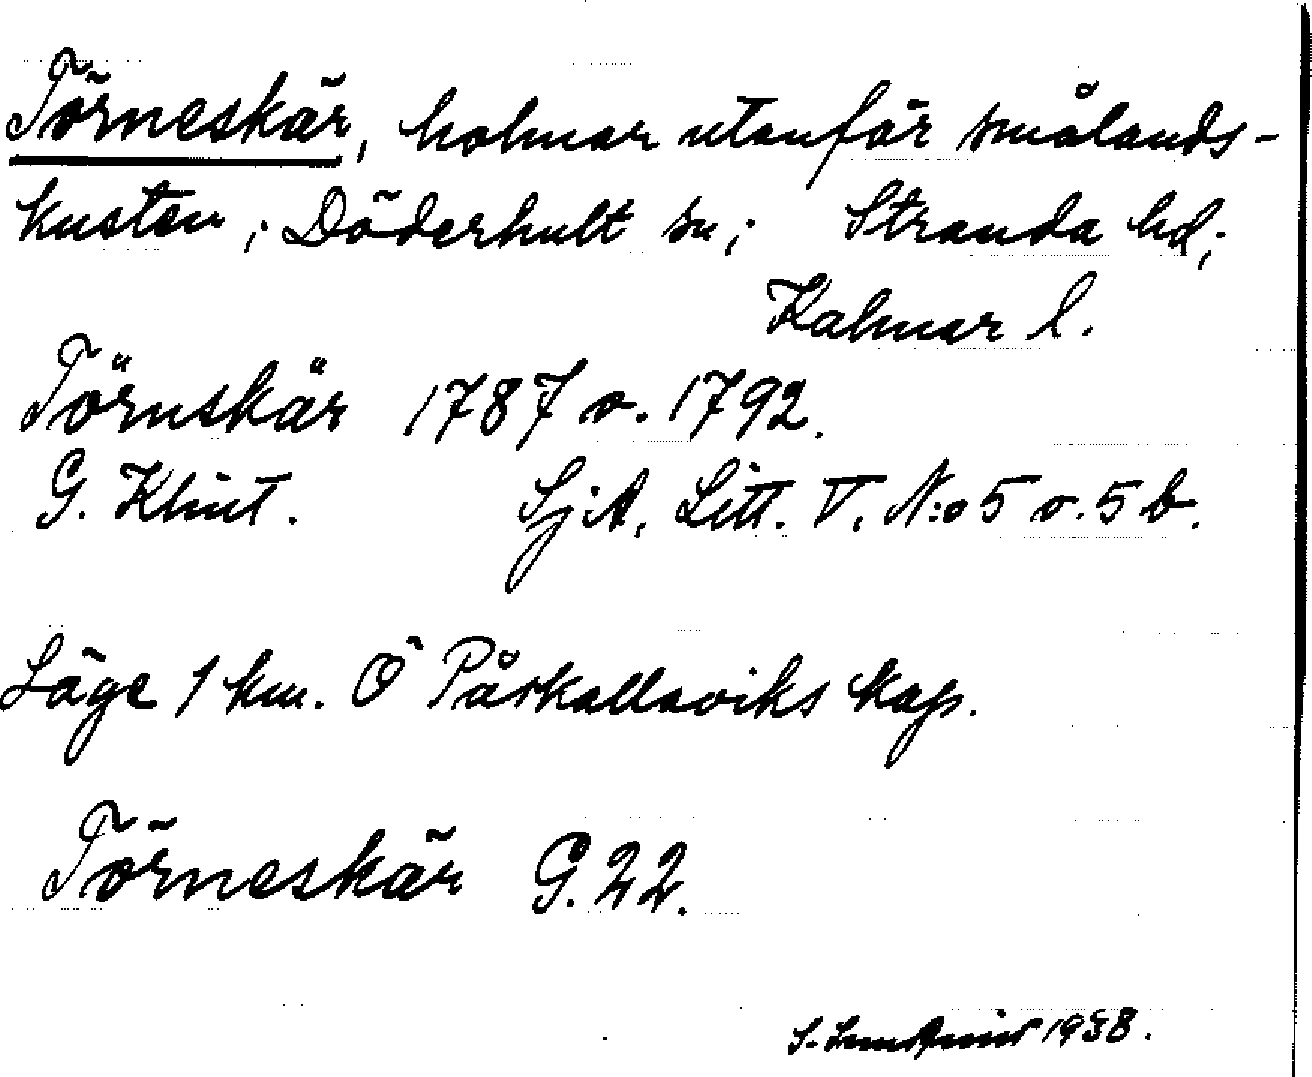 Törneskär, holmar utanför smålands-
kusten; Döderhult sn; Stranda hd;
Kalmar l.
Törnskär 1787 o. 1792.
G. Klint. SjA, Litt. V. N:o 5 o. 5 b.
Läge 1 km. Ö Påskallaviks kap.
Törneskär G. 22.
S. 1938.